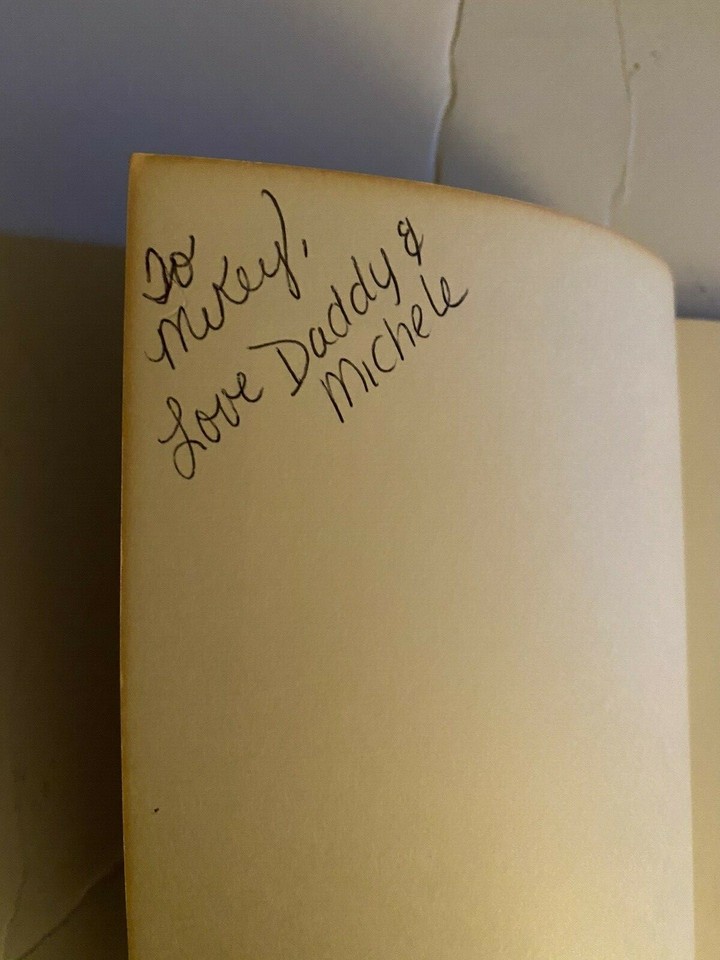 To
Mikey,
Love Daddy &
Michele